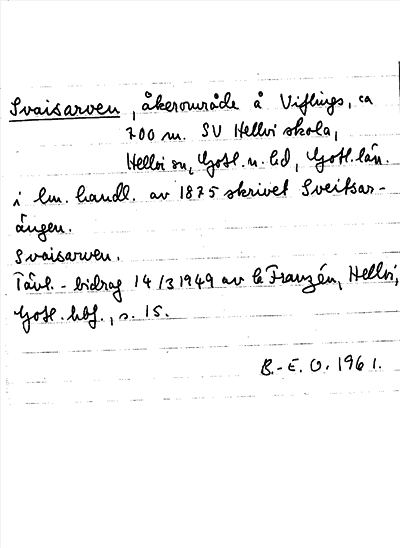 Svaisarven, åkerområde å Viflings, ca
700 m. SV Hellvi skola,
Hellvi sn, Gotl. n. hd, Gotl. län.
i lm. handl. av 1875 skrivet Sveitsar-
ängen.
Svaisarven.
Tävl. - bidrag 14/3 1949 av C Franzén, Hellvi,
Gotl. hbf., s. 15.
B.-E. O. 1961.